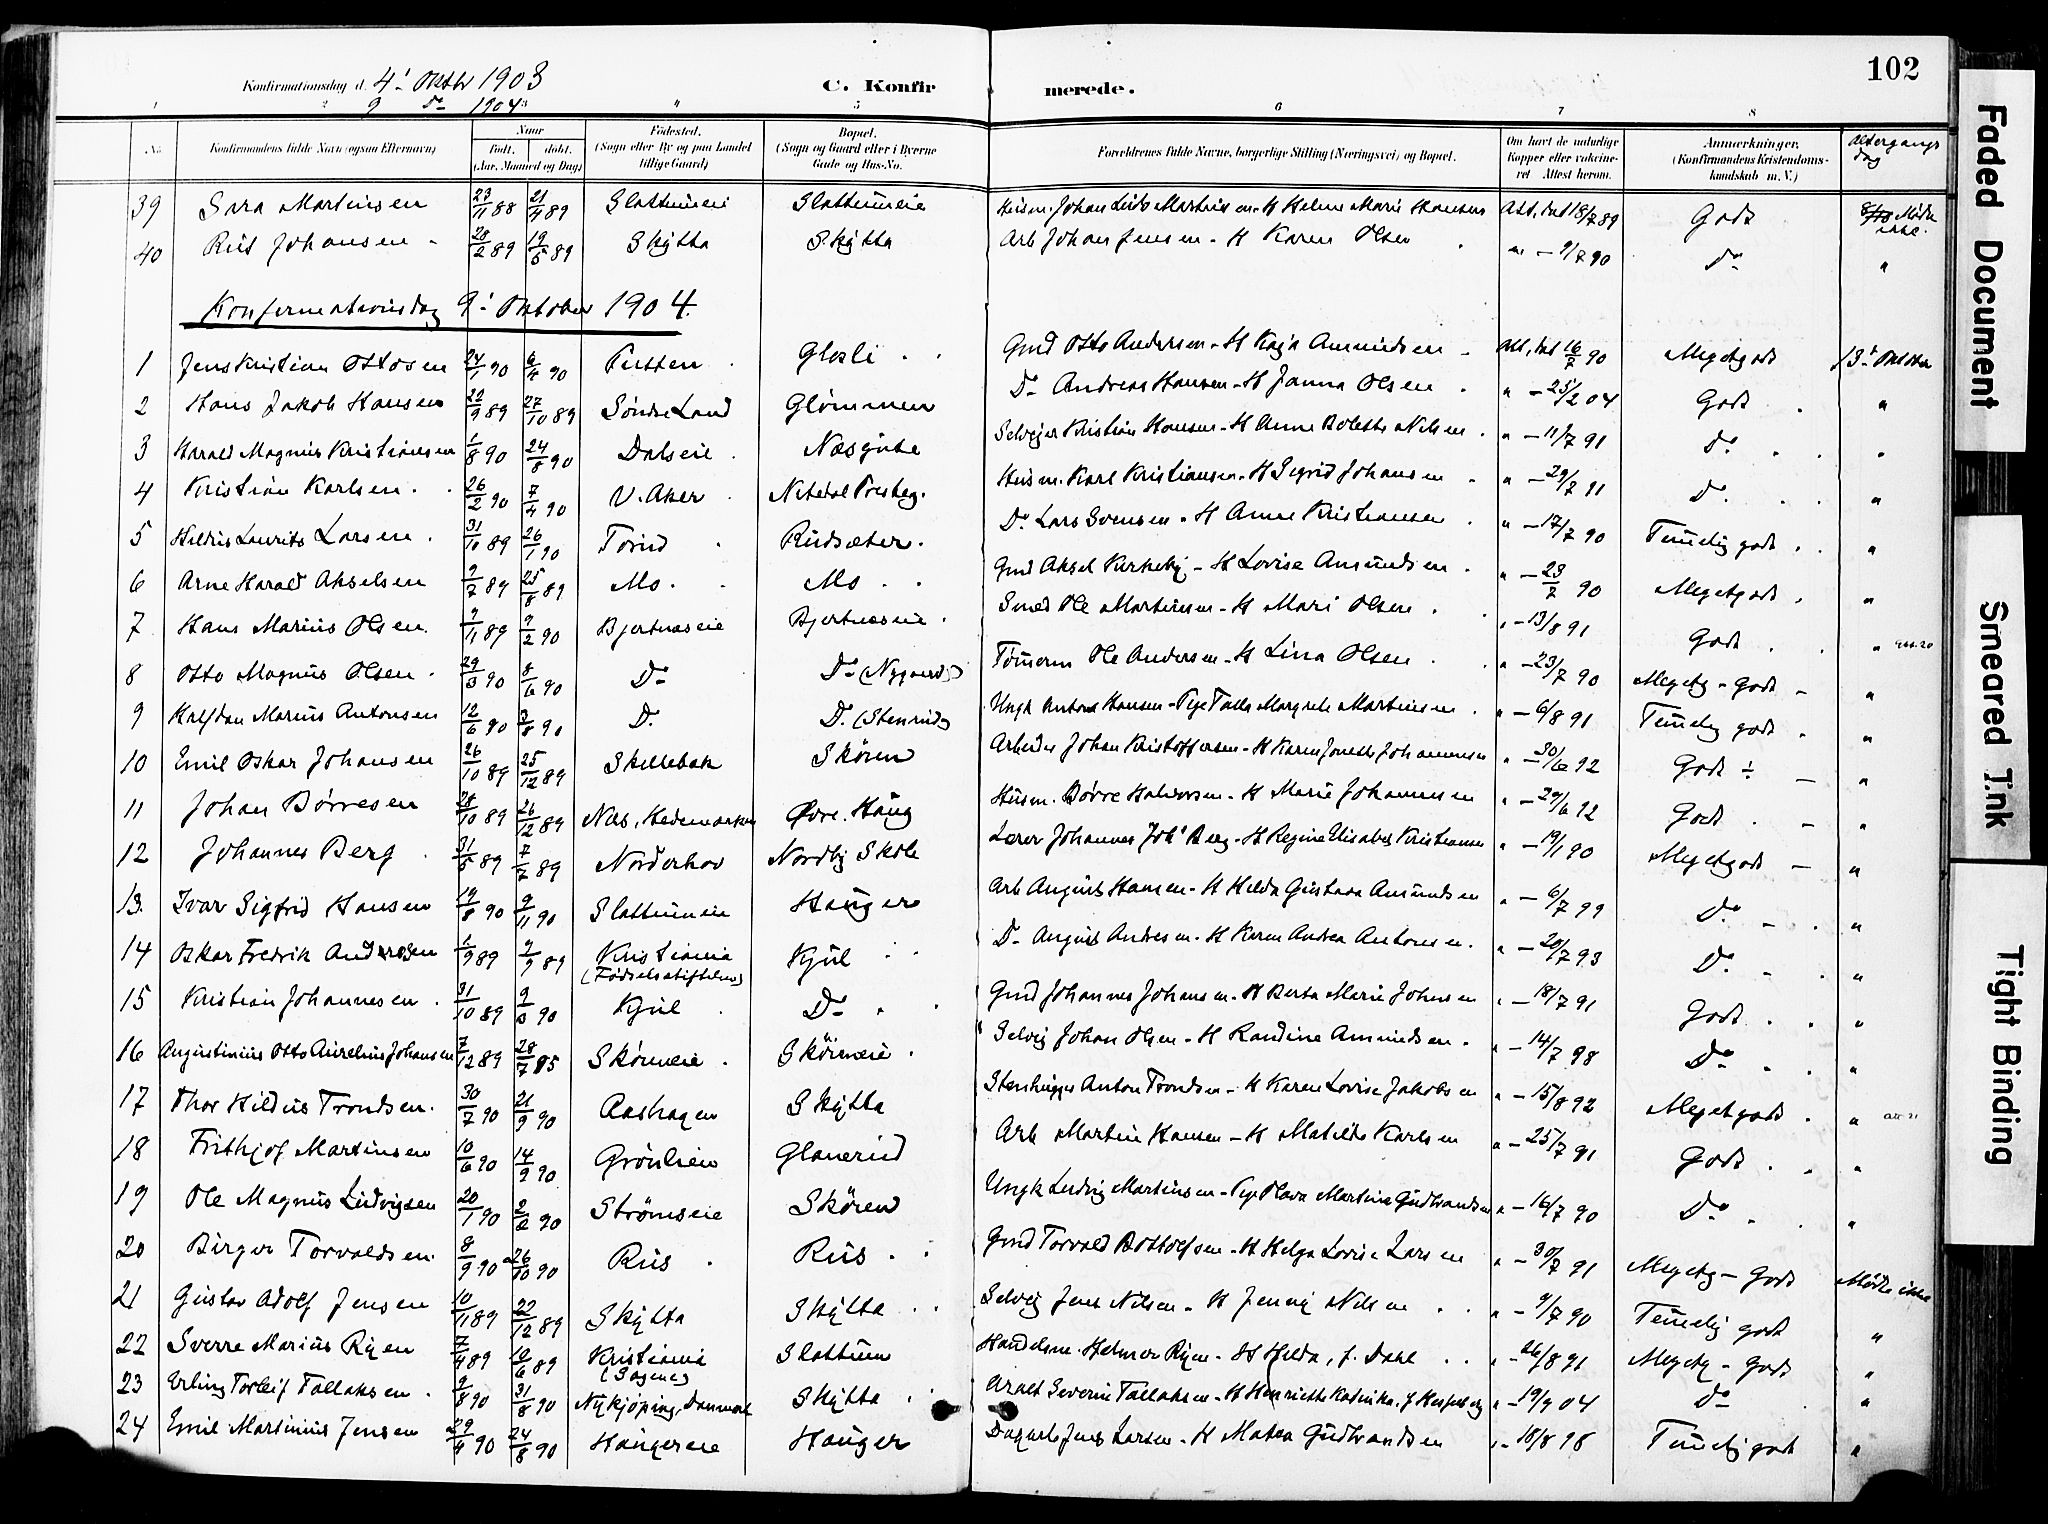 102
Konfirmationsdag d. 4' Oktbr 1903
9 Do 1904
C. Konfirmerede.
1 2 3 4 5 6 7 8
No. Konfirmandens fulde Navn (ogsaa Efternavn). Naar født. døbt. (Aar, Maaned og Dag) Fødested. (Sogn eller By og paa Landet tillige Gaard) Bopæl. (Sogn og Gaard eller i Byerne Gade og Hus-No. Forældrenes fulde Navne, borgerlige Stilling (Næringsvei) og Bopæl. Om havt de naturlige Kopper eller vaccineret. Attest herom. Anmærkninger. (Konfirmandens Kristendomskundskab m. V.) Altergangsdag
39 Sara Martinsen 23/11 88 21/4 89 Slattumeie Slattumeie Husm. Johan Martinsen - H Helene Marie Hansen Att. dat 18/7 89 Godt Mødte ikke.
40 Rus Johansen 28/2 89 19/5 89 Skytta Skytta Arb Johan Jensen - H Karen Olsen " - 9/7 90 Do "
Konfirmationsdag 9' Oktober 1904.
1 Jens Kristian Ottosen 24/1 90 6/4 90 Putten Glosli Gmd Otto Andersen - H Kaja Amundsen Att. dat 16/7 90 Meget godt 13' Oktober
2 Hans Jakob Hansen 22/9 89 27/10 89 Søndre Land Glømmen Do Andreas Hansen - H Janna Olsen " - 25/2 04 Godt "
3 Harald Magnus Kristiansen 1/8 90 24/8 90 Dalseie Næsgute Selveier Kristian Hansen - H Anne Bolette Nilsen " - 11/7 91 Do "
4 Kristian Karlsen 26/2 90 7/4 90 V. Aker Nitedal Presteg. Husm. Karl Kristiansen - H Sigrid Johansen " - 29/7 91 Do "
5 Hildus Laurits Larsen 31/10 89 26/1 90 Torud Rudsæter Do Lars Svensen - H Anne Kristiansen " - 17/7 90 Temelig godt "
6 Arne Harald Akselsen 9/7 89 25/8 89 Mo Mo Gmd Aksel Kirkeby - H Lovise Amundsen " - 23/7 90 Meget godt "
7 Hans Marius Olsen 9/11 89 9/2 90 Bjertnæseie Bjertnæseie Smed Ole Martinsen - H Mari Olsen " - 13/8 91 Godt "
8 Otto Magnus Olsen 29/3 90 8/6 90 Do Do (Nygaard) Tømerm Ole Andersen - H Lina Olsen " - 23/7 90 Meget - Godt "
9 Halfdan Marius Antonsen 12/6 90 3/8 90 Do Do (Stenrud) Ungk Anton Hansen - Pige Talla Margrete Martinsen " - 6/8 91 Temelig godt "
10 Emil Oskar Johansen 26/10 89 25/12 89 Skillebæk Skøren Arbeider Johan Kristoffersen - H Karen Jonette Johannesen " - 30/6 92 Godt ÷ "
11 Johan Børresen 28/10 89 26/12 89 Næs, Hedemarken Øvre Haug Husm. Børre Halvorsen - H Marie Johannesen " - 29/6 92 Godt "
12 Johannes Berg 31/5 89 7/7 89 Norderhov Nordby Skole Lærer Johannes Joh' Berg - H Regine Elisabet Kristiansen " - 19/1 90 Meget godt "
13. Ivar Sigfrid Hansen 19/8 90 9/11 90 Slattumeie Hauger Arb August Hansen - H Hilda Gustava Amundsen " - 6/7 99 Do "
14 Oskar Fredrik Andresen 1/9 89 9/9 89 Kristiania (Fødselsstiftelsen) Kjul Do August Andresen - H Karen Andrea Antonsen " - 20/7 93 Do "
15 Kristian Johannesen 31/10 89 9/3 90 Kjul Do Gmd Johannes Johansen - H Berta Marie Johnsen " - 18/7 91 Godt "
16 Augustinius Otto Aurelius Johansen 7/12 89 28/7 95 Skøreneie Skøreneie Selvei Johan Olsen - H Randine Amundsen " - 14/7 98 Do "
17 Thor Hildus Trondsen 30/7 90 21/9 90 Aashagen Skytta Stenhugger Anton Trondsen - H Karen Lovise Jakobsen " - 15/8 92 Meget godt "
18 Frithjof Martinsen 10/6 90 14/9 90 Grønlien Glanerud Arb Martin Hansen - H Matilde Karlsen " - 25/7 91 Godt "
19 Ole Magnus Ludvigsen 20/1 90 2/2 90 Strømseie Skøren Ungk Ludvig Martinsen - Pige Olava Martine Gudbrandsen " - 16/7 90 Do "
20 Birger Torvaldsen 8/9 90 26/10 90 Rus Rus Gmd Torvald Bottolfsen - H Helga Lovise Larsen " - 30/7 91 Meget - Godt Mødte ikke
21 Gustav Adolf Jensen 10/11 89 22/12 89 Skytta Skytta Selvei Jens Nilsen - H Jenny Nilsen " - 9/7 90 Temelig godt "
22 Sverre Marius Ryen 7/4 89 10/6 89 Kristiania (Sagene) Slattum Handelsm. Helmer Ryen - H Hilda, f. Dahl " - 26/8 91 Meget - Godt "
23 Erling Torleif Tallaksen 9/8 90 31/8 90 Nykjøping, Danmark Skytta Severin Tallaksen - H Henriette Katinka, f " - 19/9 04 Do "
24 Emil Martinius Jensen 29/4 90 24/8 90 Haugereie Hauger Jens Larsen - H Matea Gudbrandsen " - 18/8 98 Temelig godt "
Faded Document
Smeared Ink
Tight Binding